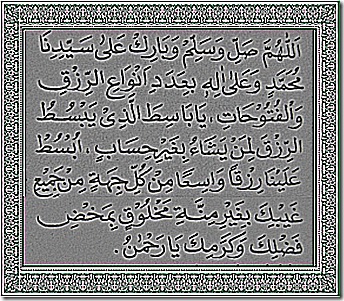 اَللّٰهُمَّ صَلِّ وَسَلِّمْ وَبَارِكْ عَلَى سَيِّدِنَا
مُحَمَّدٍ وَعَلَى اٰلِهِ بِعَدَدِ اَنْوَاعِ الرِّزْقِ
وَالْفُتُوحَاتِ ، يَا بَاسِطَ الَّذِىْ يَبْسُطُ
الرِّزْقَ لِمَنْ يَشَاءُ بِغَيْرِ حِسَابٍ ، اُبْسُطْ
عَلَيْنَا رِزْقًا وَاسِعًا مِنْ كُلِّ جِهَةٍ مِنْ جَمِيْعِ
غَيْبِكَ بِغَيْرِ مِنَّةِ مَخْلُوْقٍ بِمَحْضِ
فَضْلِكَ وَكَرَمِكَ يَا رَحْمٰنُ .